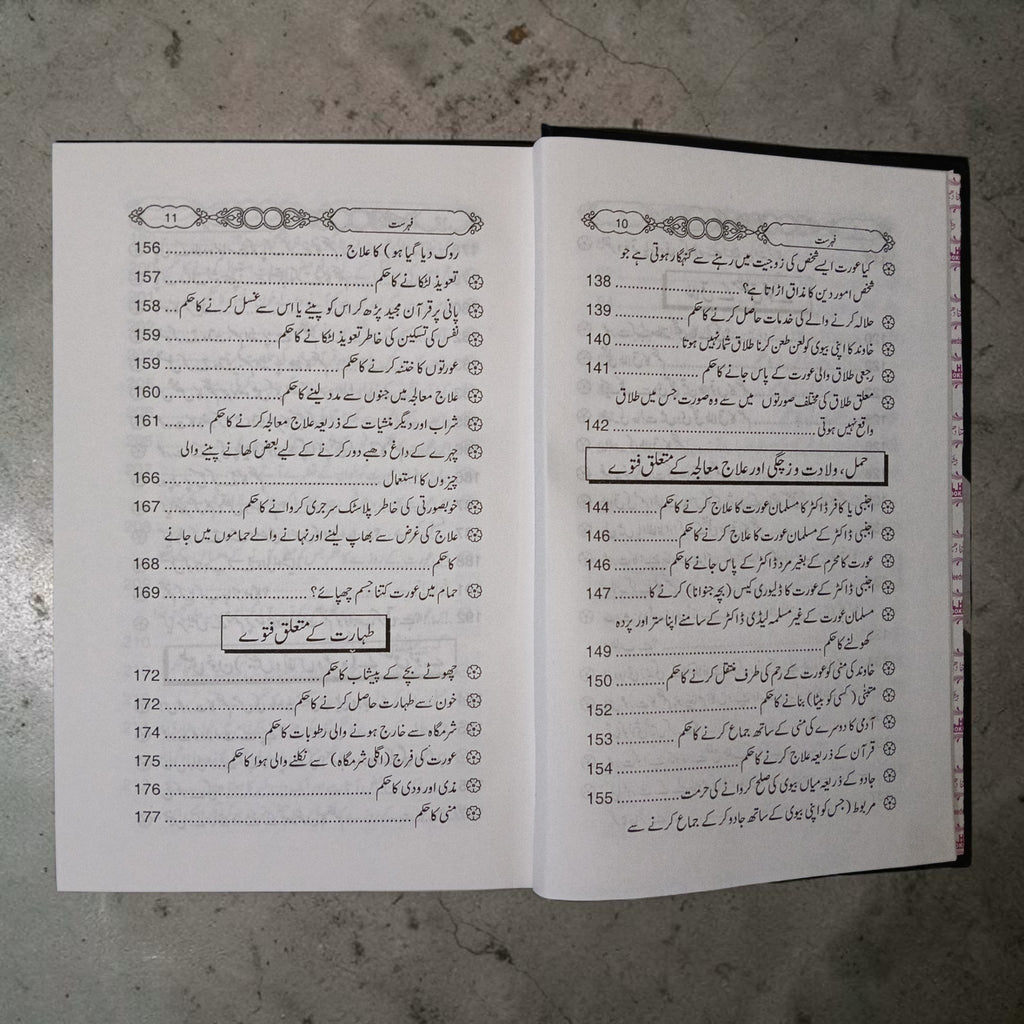 10 فہرست
کیا عورت ایسے شخص کی زوجیت میں رہنے سے گنہگار ہوتی ہے جو
شخص امور دین کا مذاق اڑاتا ہے؟ ........ 138
حلالہ کرنے والے کی خدمات حاصل کرنے کا حکم ........ 139
خاوند کا اپنی بیوی کو لعن طعن کرنا طلاق شمار نہیں ہوتا ........ 140
رجعی طلاق والی عورت کے پاس جانے کا حکم ........ 141
معلق طلاق کی مختلف صورتوں میں سے وہ صورت جس میں طلاق
واقع نہیں ہوتی ........ 142
حمل، ولادت و زچگی اور علاج معالجہ کے متعلق فتوے
اجنبی یا کافر ڈاکٹر کا مسلمان عورت کا علاج کرنے کا حکم ........ 144
اجنبی ڈاکٹر کے مسلمان عورت کا علاج کرنے کا حکم ........ 146
عورت کا محرم کے بغیر مرد ڈاکٹر کے پاس جانے کا حکم ........ 146
اجنبی ڈاکٹر کے عورت کا ڈلیوری کیس (بچہ جنوانا) کرنے کا ........ 147
مسلمان عورت کے غیر مسلمہ لیڈی ڈاکٹر کے سامنے اپنا ستر اور پردہ
کھولنے کا حکم ........ 149
خاوند کی منی کو عورت کے رحم کی طرف منتقل کرنے کا حکم ........ 150
متبنٰی (کسی کو بیٹا) بنانے کا حکم ........ 152
آدمی کا دوسرے کی منی کے ساتھ جماع کرنے کا حکم ........ 153
قرآن کے ذریعہ علاج کرنے کا حکم ........ 154
جادو کے ذریعہ میاں بیوی کی صلح کروانے کی حرمت ........ 155
مربوط (جس کو اپنی بیوی کے ساتھ جادو کر کے جماع کرنے سے
11 فہرست
روک دیا گیا ہو) کا علاج ........ 156
تعویذ لٹکانے کا حکم ........ 157
پانی پر قرآن مجید پڑھ کر اس کو پینے یا اس سے غسل کرنے کا حکم ... 158
نفس کی تسکین کی خاطر تعویذ لٹکانے کا حکم ........ 159
عورتوں کا ختنہ کرنے کا حکم ........ 159
علاج معالجہ میں جنوں سے مدد لینے کا حکم ........ 160
شراب اور دیگر منشیات کے ذریعہ علاج معالجہ کرنے کا حکم ........ 161
چہرے کے داغ دھبے دور کرنے کے لیے بعض کھانے پینے والی
چیزوں کا استعمال ........ 166
خوبصورتی کی خاطر پلاسٹک سرجری کروانے کا حکم ........ 167
علاج کی غرض سے بھاپ لینے اور نہانے والے حماموں میں جانے
کا حکم ........ 168
حمام میں عورت کتنا جسم چھپائے؟ ........ 169
طہارت کے متعلق فتوے
چھوٹے بچے کے پیشاب کا حکم ........ 172
خون سے طہارت حاصل کرنے کا حکم ........ 172
شرمگاہ سے خارج ہونے والی رطوبات کا حکم ........ 174
عورت کی فرج (اگلی شرمگاہ) سے نکلنے والی ہوا کا حکم ........ 175
مذی اور ودی کا حکم ........ 176
منی کا حکم ........ 177